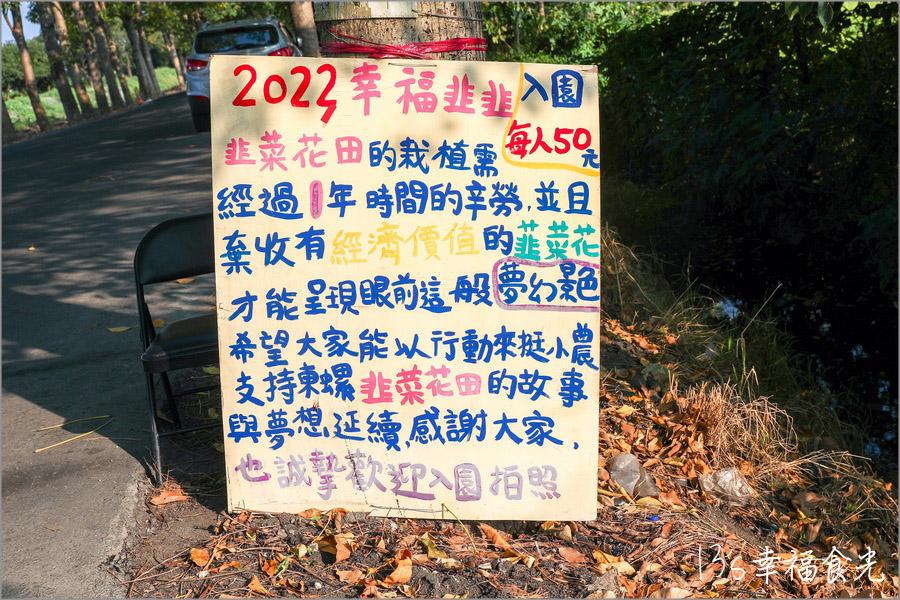 2023幸福韭韭
入園
每人50元
韭菜花田的栽植需
經過1年時間的辛勞,並且
棄收有經濟價值的韭菜花
才能呈現眼前這一般夢幻景色
希望大家能以行動來挺小農
支持東螺韭菜花田的故事
與夢想延續,感謝大家,
也誠摯歡迎入園拍照
13's幸福食光